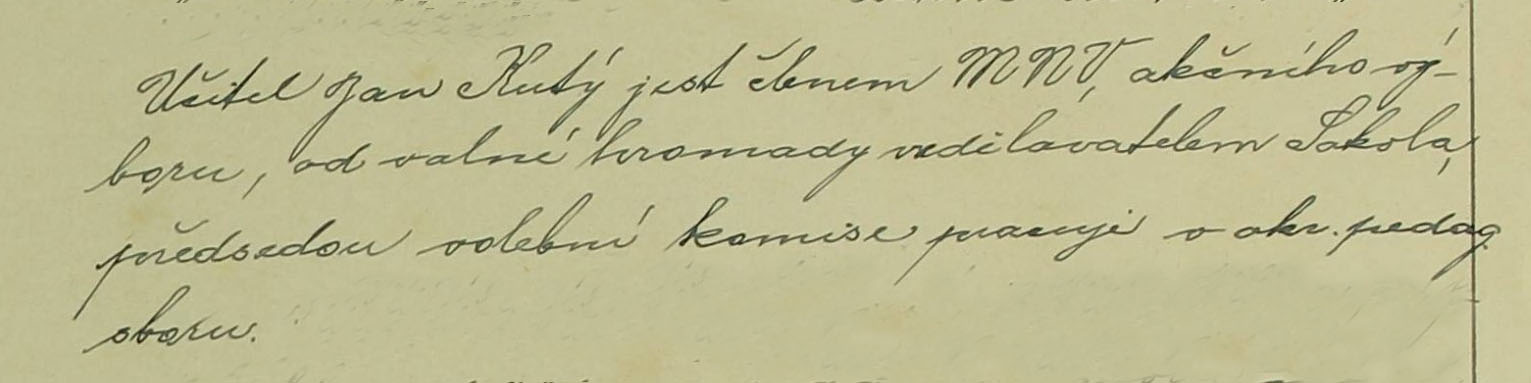 Učitel Jan Kutý jest členem MNV, akčního vý-
boru, od valné hromady vzdělavatelem Sokola,
předsedou volební komise pracuje v okr. pedag.
sboru.